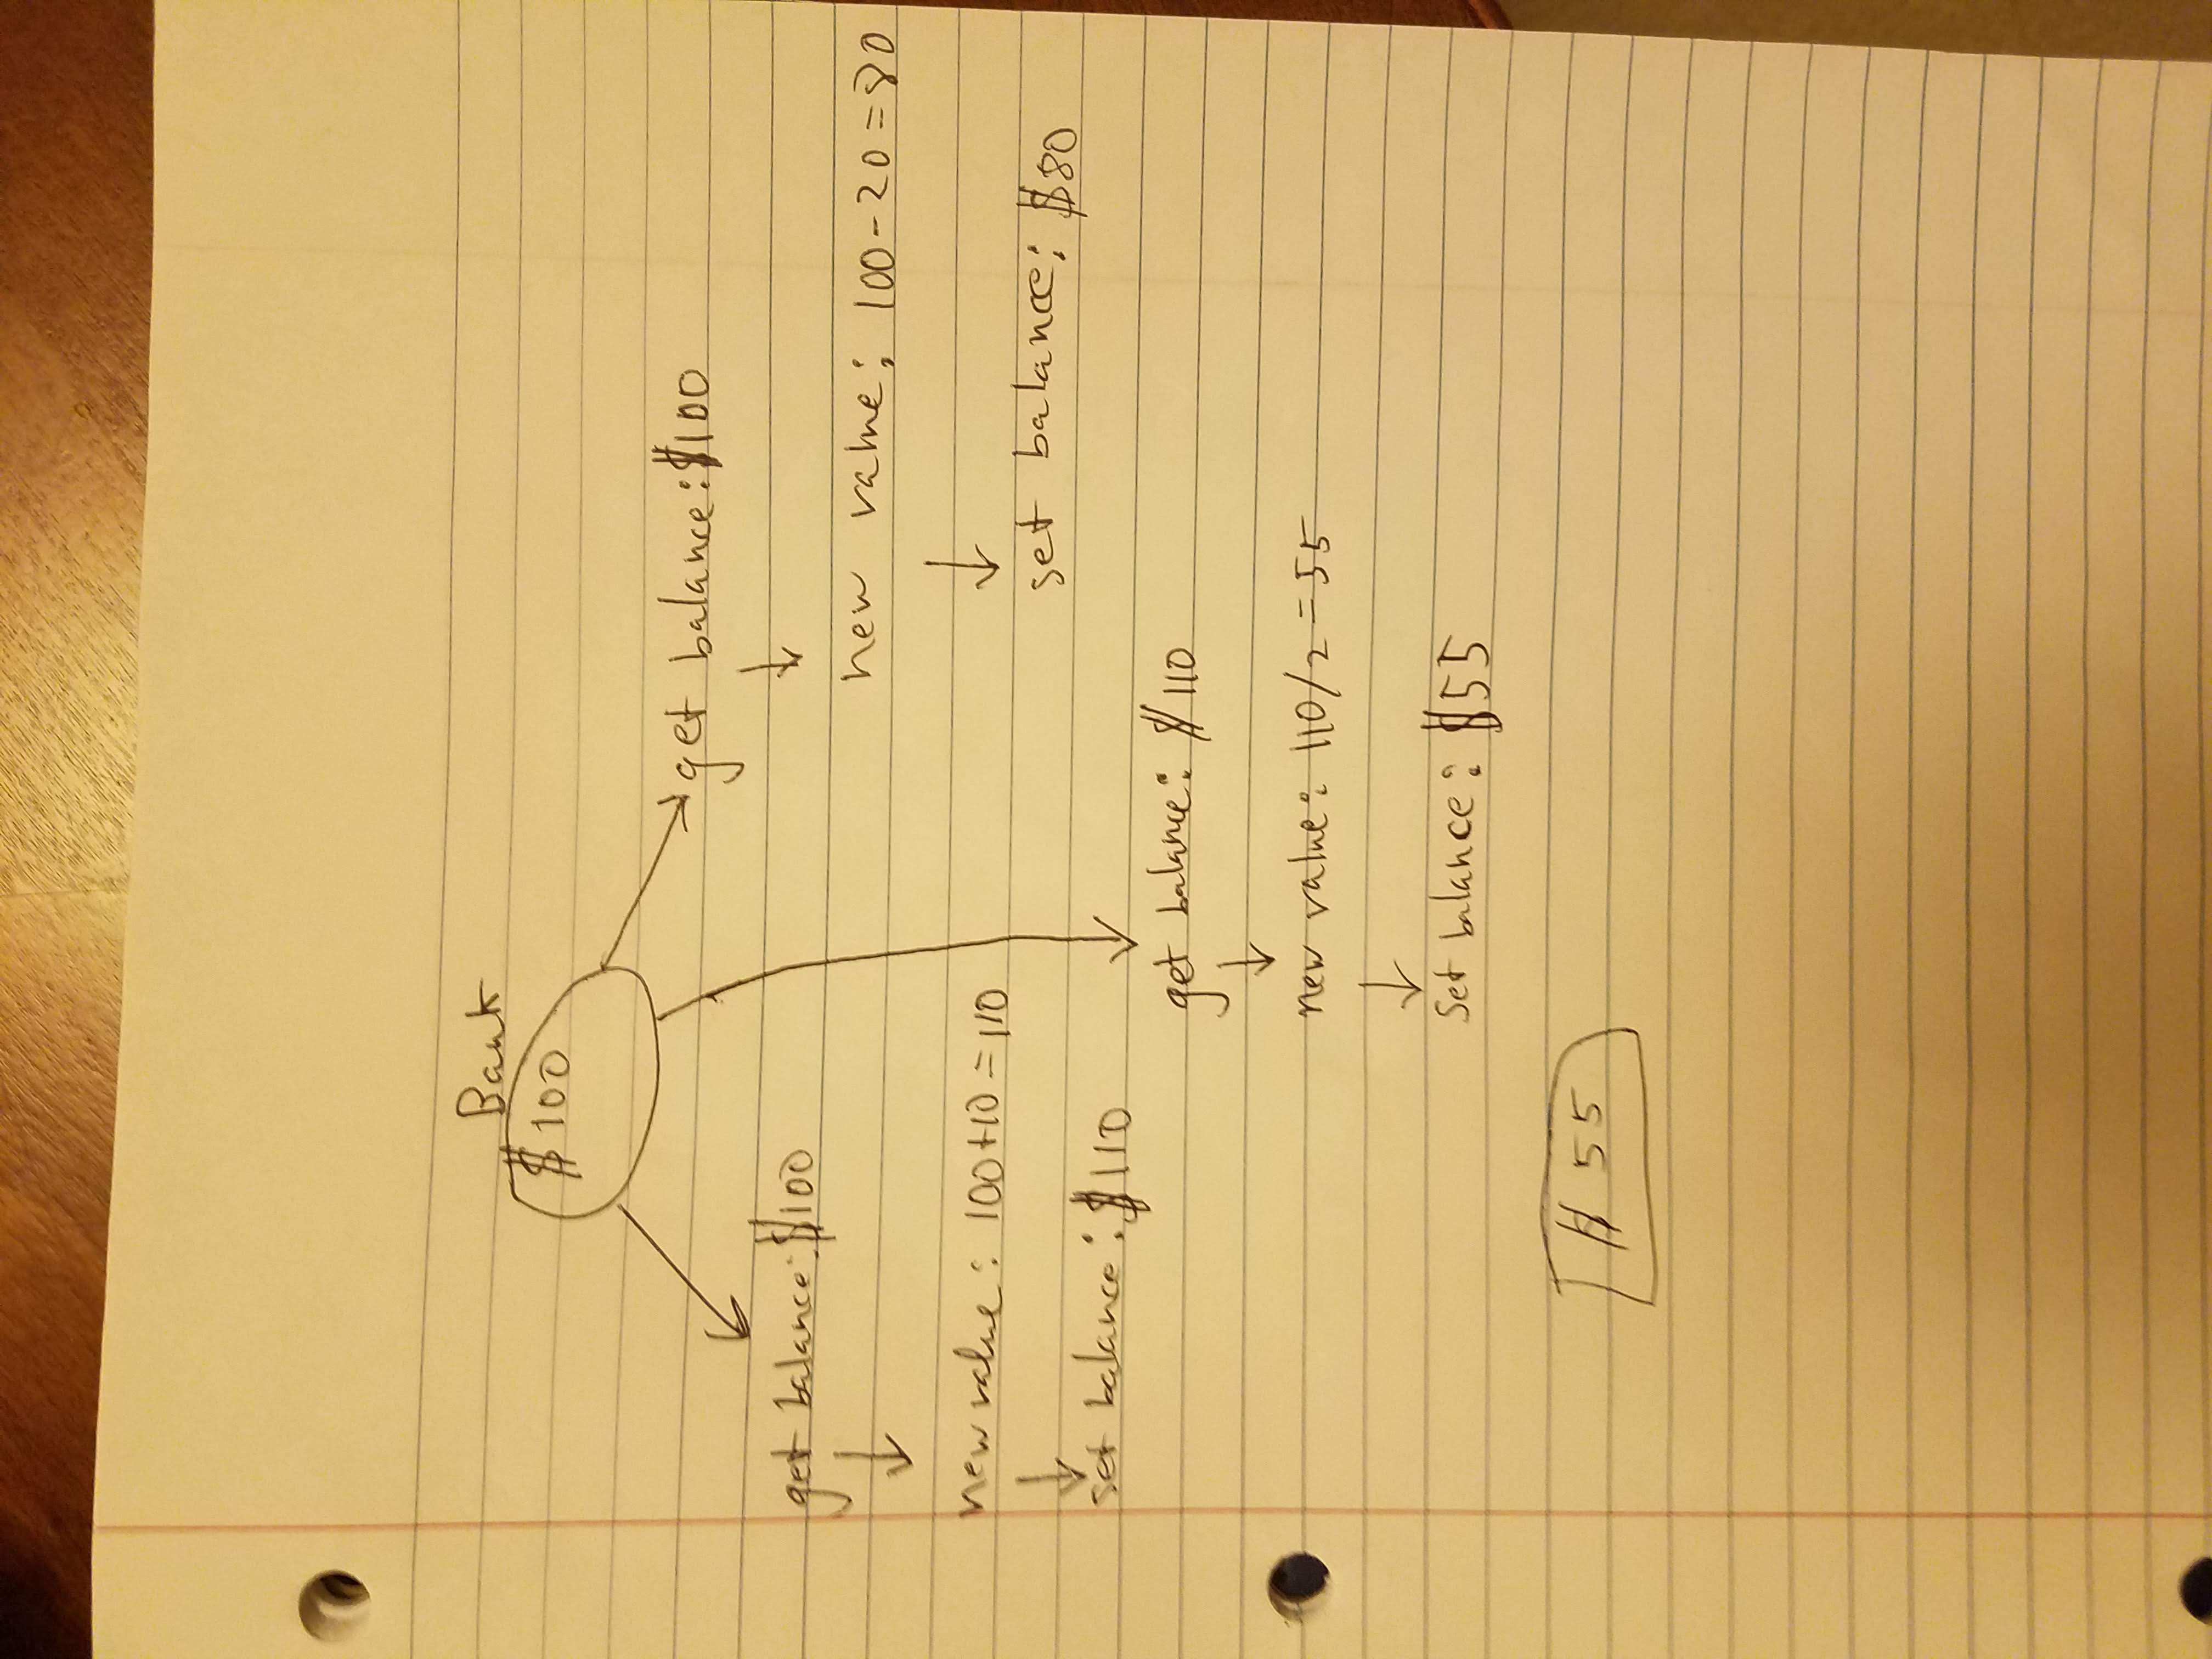 Bank
$100
get balance: $100
new value: 100+10=110
set balance: $110
get balance: $100
new value: 100-20=80
set balance: $80
get balance: $110
new value: 110/2=55
Set balance: $55
$55